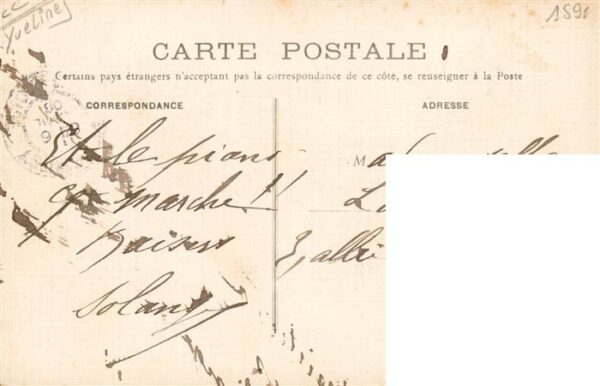 Yveline
1891
CARTE POSTALE
Certains pays étrangers n'acceptant pas la correspondance de ce côté, se renseigner à la Poste
CORRESPONDANCE
ADRESSE
Et le piano
ça marche!!
Baisers
Solange
M
3, allé